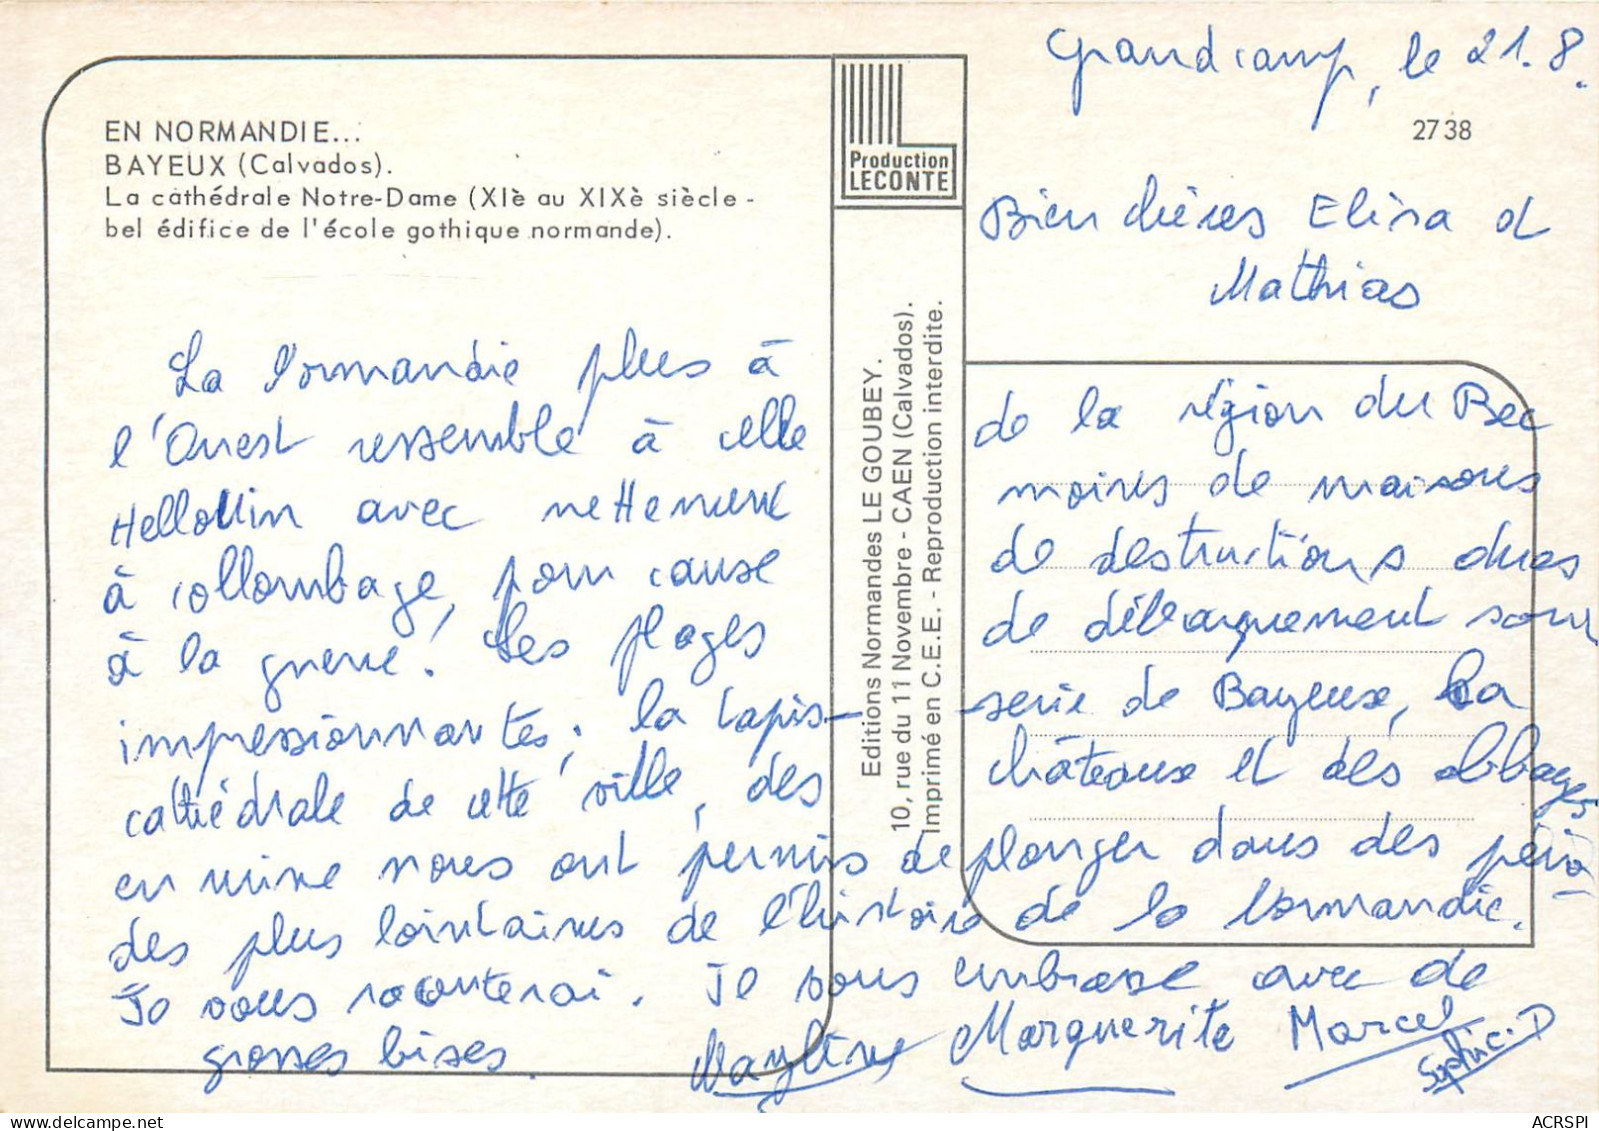 Grandcamp, le 21.8.
2738
EN NORMANDIE...
BAYEUX (Calvados).
La cathédrale Notre-Dame (XIè au XIXè siècle -
bel édifice de l'école gothique normande).
Production
LECONTE
Editions Normandes LE GOUBEY.
10, rue du 11 Novembre - CAEN (Calvados).
Imprimé en C.E.E. - Reproduction interdite.
Bien chères Elisa et
Mathias
La Normandie plus à
l'Ouest ressemble à celle de la région du Bec
Hellouin avec nettement moins de maisons
à collombage, pour cause de destructions dues
à la guerre! Les plages de débarquement sont
impressionnantes; la tapis- -serie de Bayeux, la
cathédrale de cette ville, des châteaux et des abbayes
en ruine nous ont permis de plonger dans des pério-
des plus lointaines de l'histoire de la Normandie.
Je vous raconterai. Je vous embrasse avec de
grosses bises. Marguerite Marcel
Sophie. D
ACRSPI